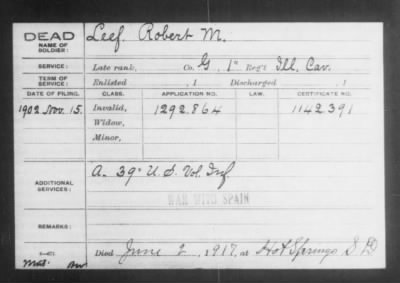 DEAD
NAME OF SOLDIER: Leef, Robert M.
SERVICE: Late rank, Co. G, 1" Reg't Ill. Cav.
TERM OF SERVICE: Enlisted , 1 Discharged , 1
DATE OF FILING. CLASS. APPLICATION NO. LAW. CERTIFICATE NO.
1902 Nov. 15. Invalid, 1292.864 1142.391
Widow,
Minor,
ADDITIONAL SERVICES: A. 39" U.S. Vol. Inf
WAR WITH SPAIN
REMARKS:
Died June 2, 1917, at Hot Springs S D